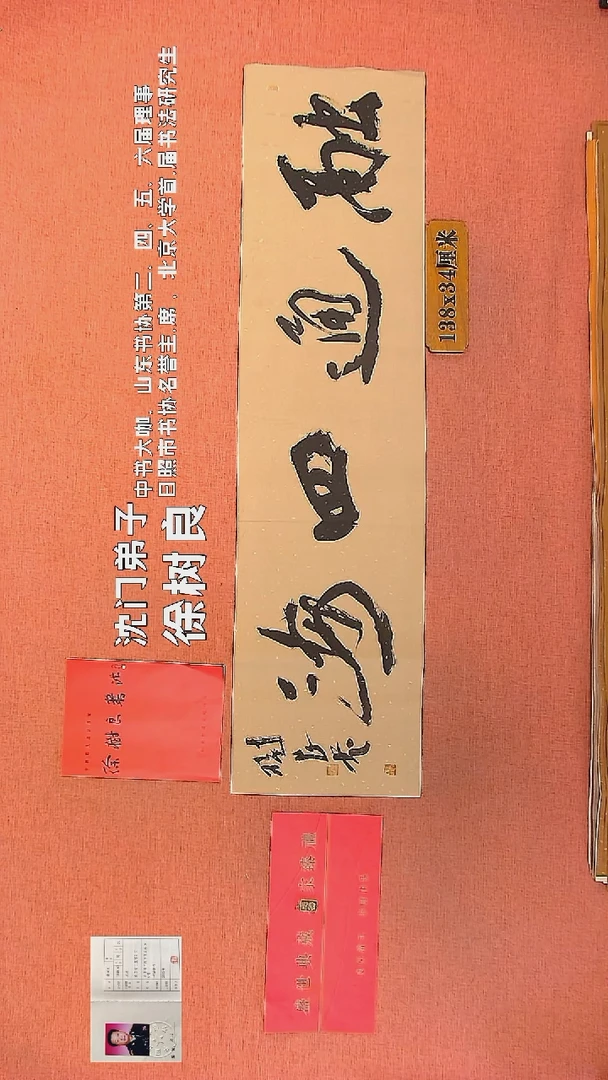 沈门弟子
徐树良
中书大咖、山东书协第二、四、五、六届理事
日照市书协名誉主席、北京大学首届书法研究生
融通四海
树良书
138x34厘米
徐树良书法
盛世典藏